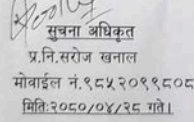 सुचना अधिकृत
प्र.नि.सरोज खनाल
मोवाईल नं.९८५२०९९८०८
मितिः२०८०/०४/२८ गते।